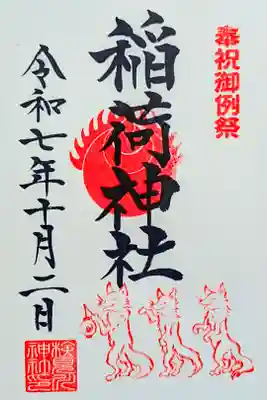 奉祝御例祭
稲荷神社
令和七年十月二日